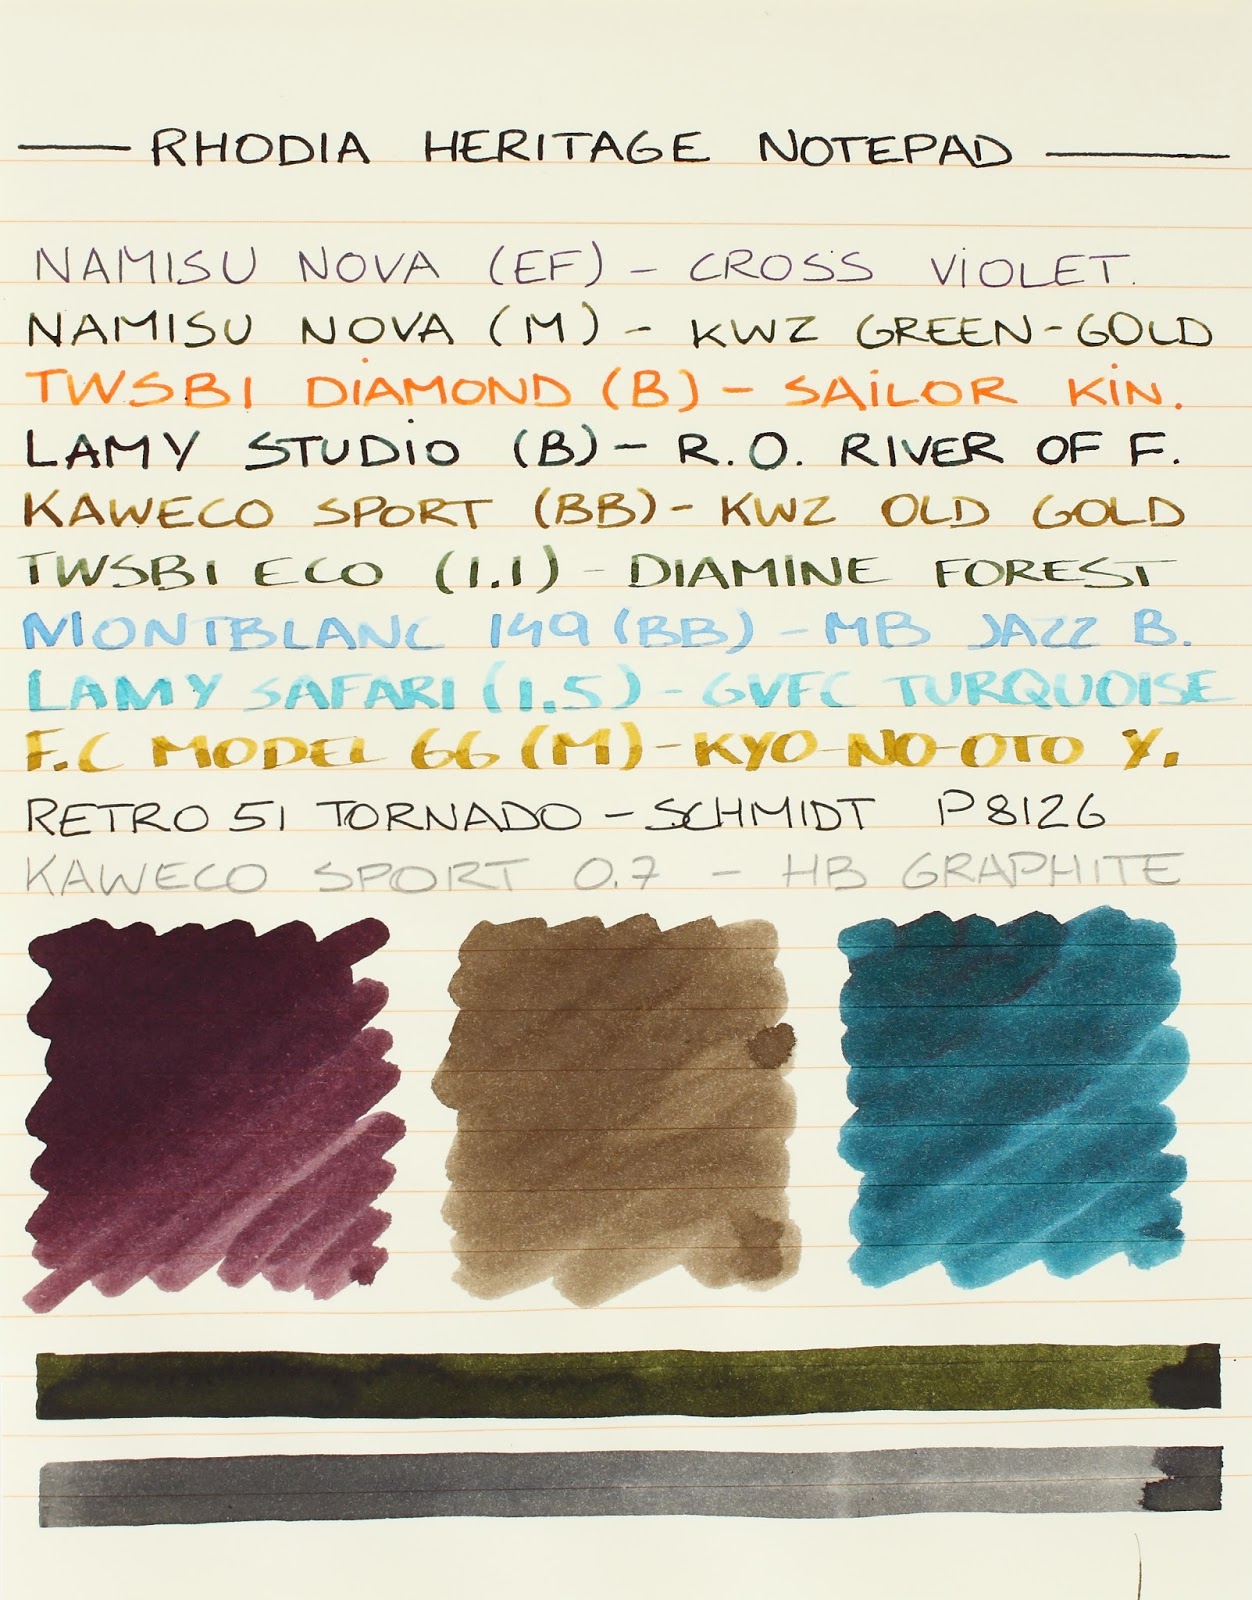 RHODIA HERITAGE NOTEPAD
NAMISU NOVA (EF) - CROSS VIOLET.
NAMISU NOVA (M) - KWZ GREEN-GOLD
TWSBI DIAMOND (B) - SAILOR KIN.
LAMY STUDIO (B) - R.O. RIVER OF F.
KAWECO SPORT (BB) - KWZ OLD GOLD
TWSBI ECO (1.1) - DIAMINE FOREST
MONTBLANC 149 (BB) - MB JAZZ B.
LAMY SAFARI (1.5) - GVFC TURQUOISE
F.C MODEL 66 (M) - KYO-NO-OTO Y.
RETRO 51 TORNADO - SCHMIDT P8126
KAWECO SPORT 0.7 - HB GRAPHITE